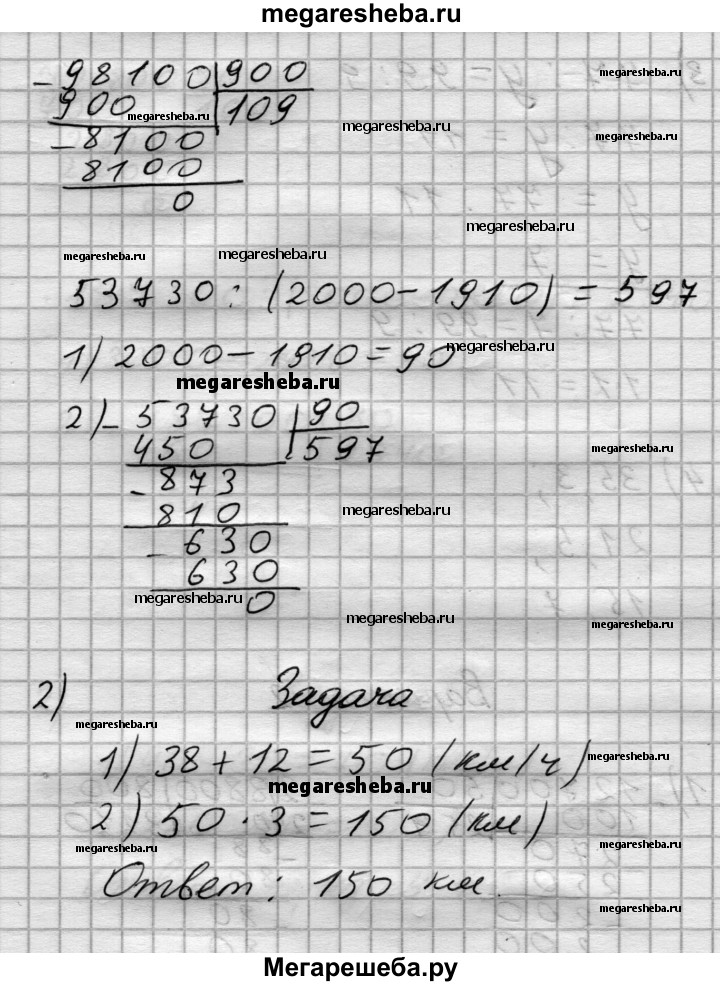 megaresheba.ru
- 98100 900 megaresheba.ru
900 megaresheba.ru 109 megaresheba.ru
- 8100
8100
0
megaresheba.ru
megaresheba.ru megaresheba.ru
53730 : (2000-1910) = 597
1) 2000-1910=90 megaresheba.ru
megaresheba.ru
2) - 53730 90
450 597 megaresheba.ru
- 873
810 megaresheba.ru
- 630
630
megaresheba.ru 0
megaresheba.ru megaresheba.ru
2) Задача
megaresheba.ru
1) 38 + 12 = 50 (км/ч) megaresheba.ru
megaresheba.ru
2) 50 · 3 = 150 (км)
megaresheba.ru megaresheba.ru
Ответ: 150 км.
megaresheba.ru
Мегарешеба.ру